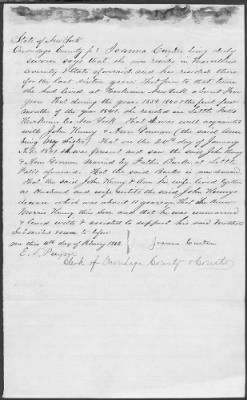 State of New York
Onondaga County ss Joanna Curtin being duly
sworn says that she now resides in
County & State aforesaid and has resided there
for the last sixteen years that prior to that time
she had lived at Herkimer New York a
year that during the years 1859 1860 & the first few
months of the year 1861 she resided at Little Falls
Herkimer Co New York That she was well acquainted
with John Kenny & Ann Gorman (the said Ann
being my Sister) That on the 20th day of January
A.D. 1861 she was present and saw the said John Kenny
& Ann Gorman Married by Father at Little
Falls aforesaid That the said is now dead
That the said John Kenny & Ann his wife lived together
as Husband and wife until the said John Kennys
decease which was about 11 years ago that the
Kenny this Son and that he was unmarried
& lived with & assisted to support his said Mother
Subscribed & sworn to before
me this 4th day of 188 } Joanna Curtin
E.
Clerk of Onondaga County & Courts